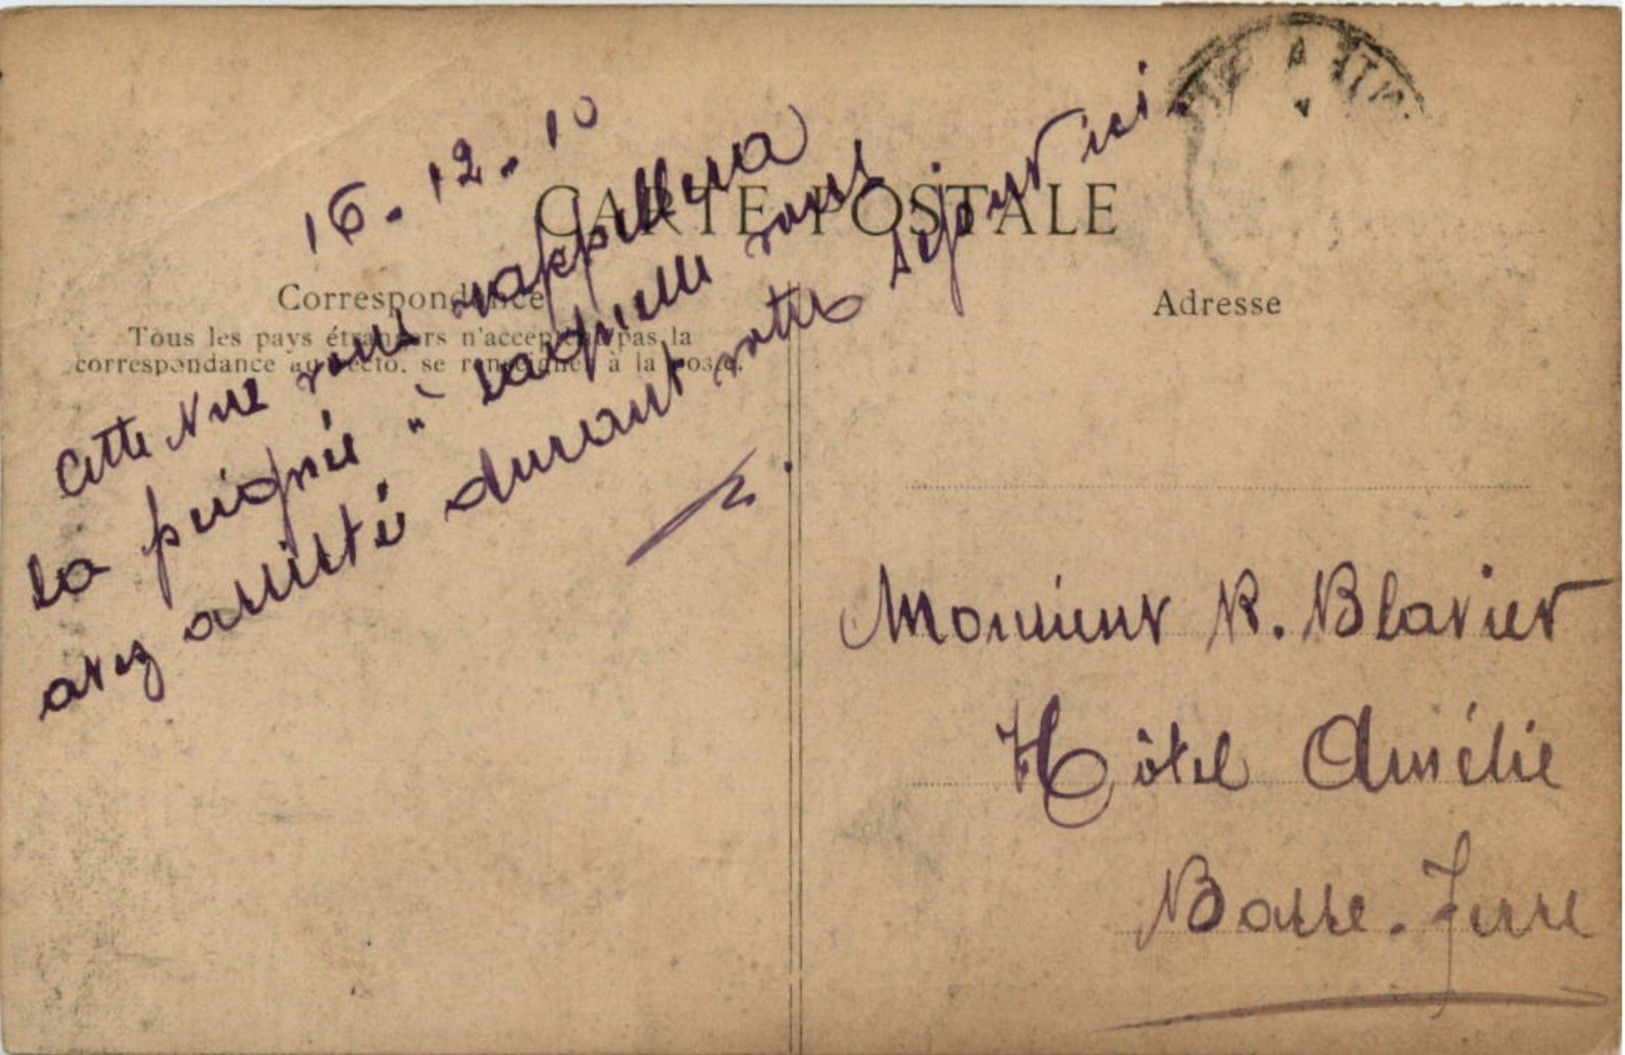 16-12-10
CARTE POSTALE
Correspondance
Tous les pays étrangers n'acceptent pas la
correspondance au recto, se renseigner à la poste.
Adresse
Cette vue vous rappellera
la peignée à laquelle vous
avez assisté durant votre séjour ici.
Monsieur R. Blavier
Hôtel Amélie
Basse-Terre